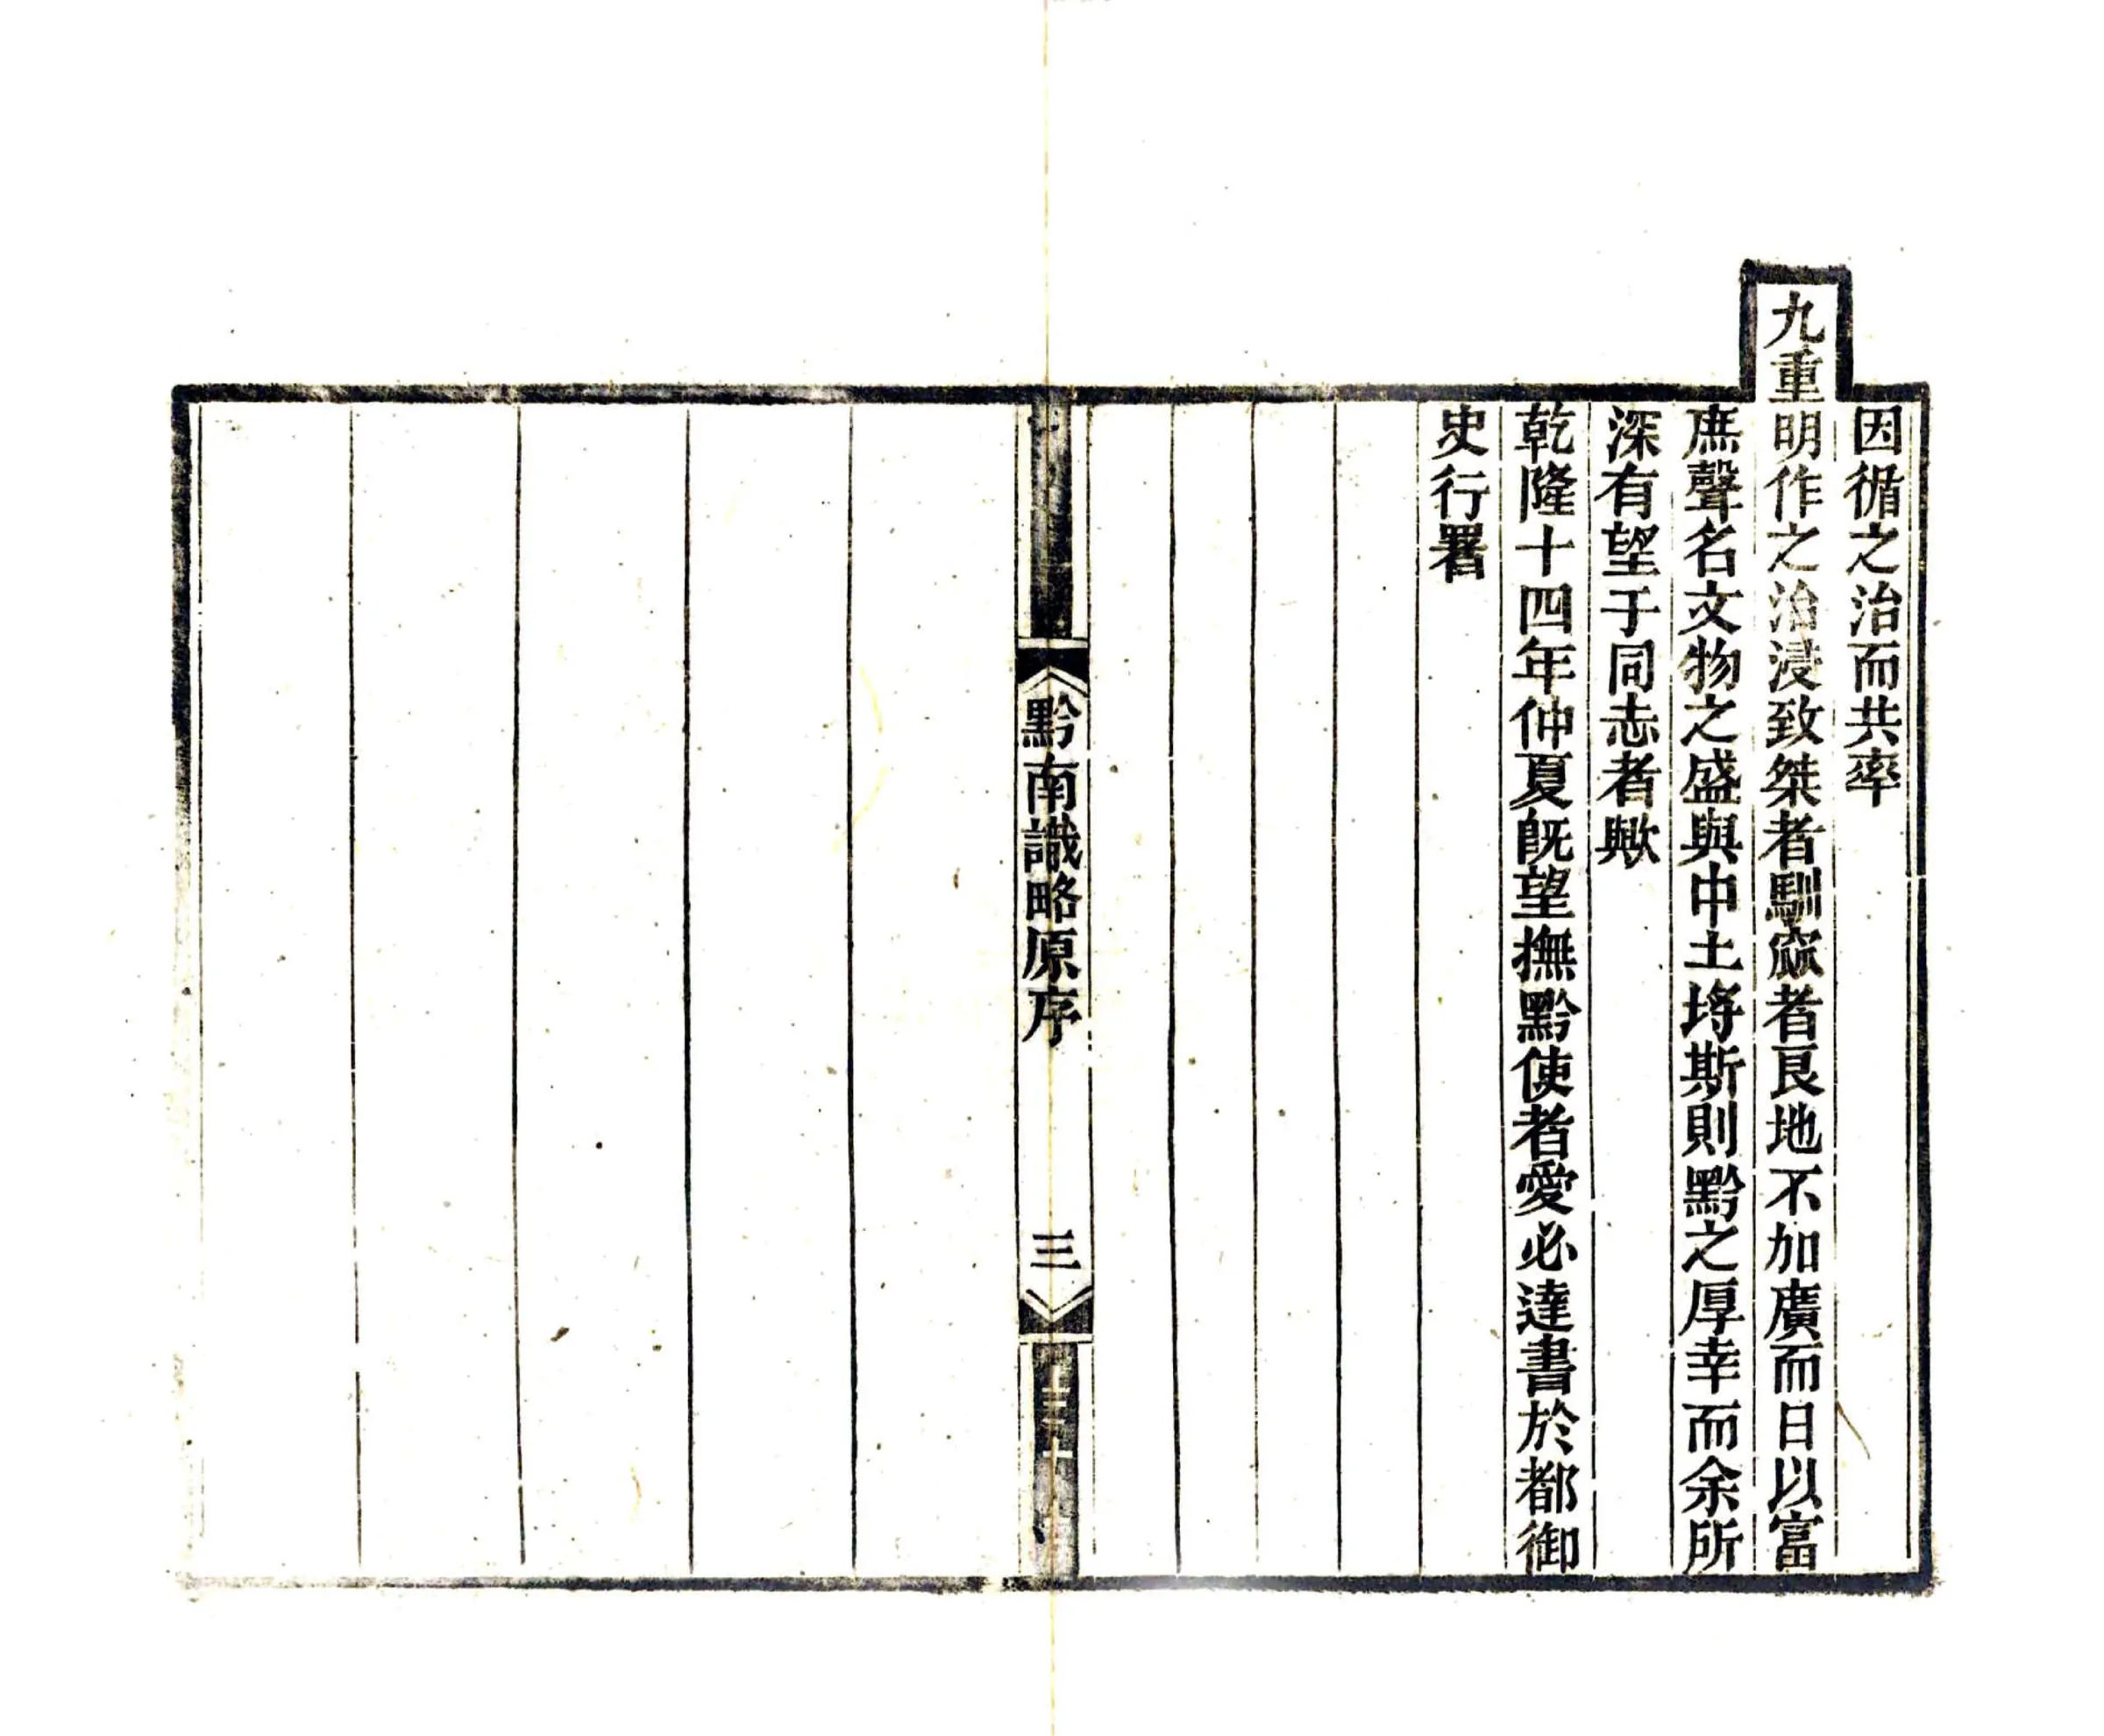 因循之治而共率
九重明作之治浸致桀者馴窳者良地不加廣而日以富
庶聲名文物之盛與中土埒斯則黔之厚幸而余所
深有望于同志者歟
乾隆十四年仲夏旣望撫黔使者愛必達書於都御
史行署
黔南識略原序
三